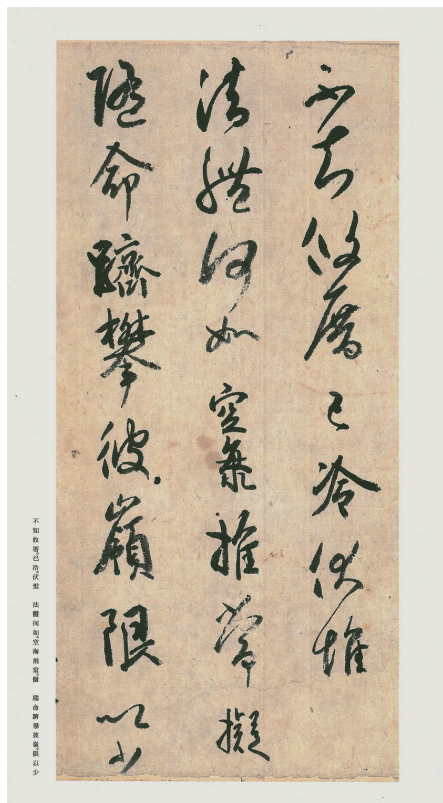 不知攸厝已冷伏惟
法體何如空海推常擬
隨命躋攀彼嶺限以少
不知攸厝已冷伏惟　法體何如空海推常擬　隨命躋攀彼嶺限以少